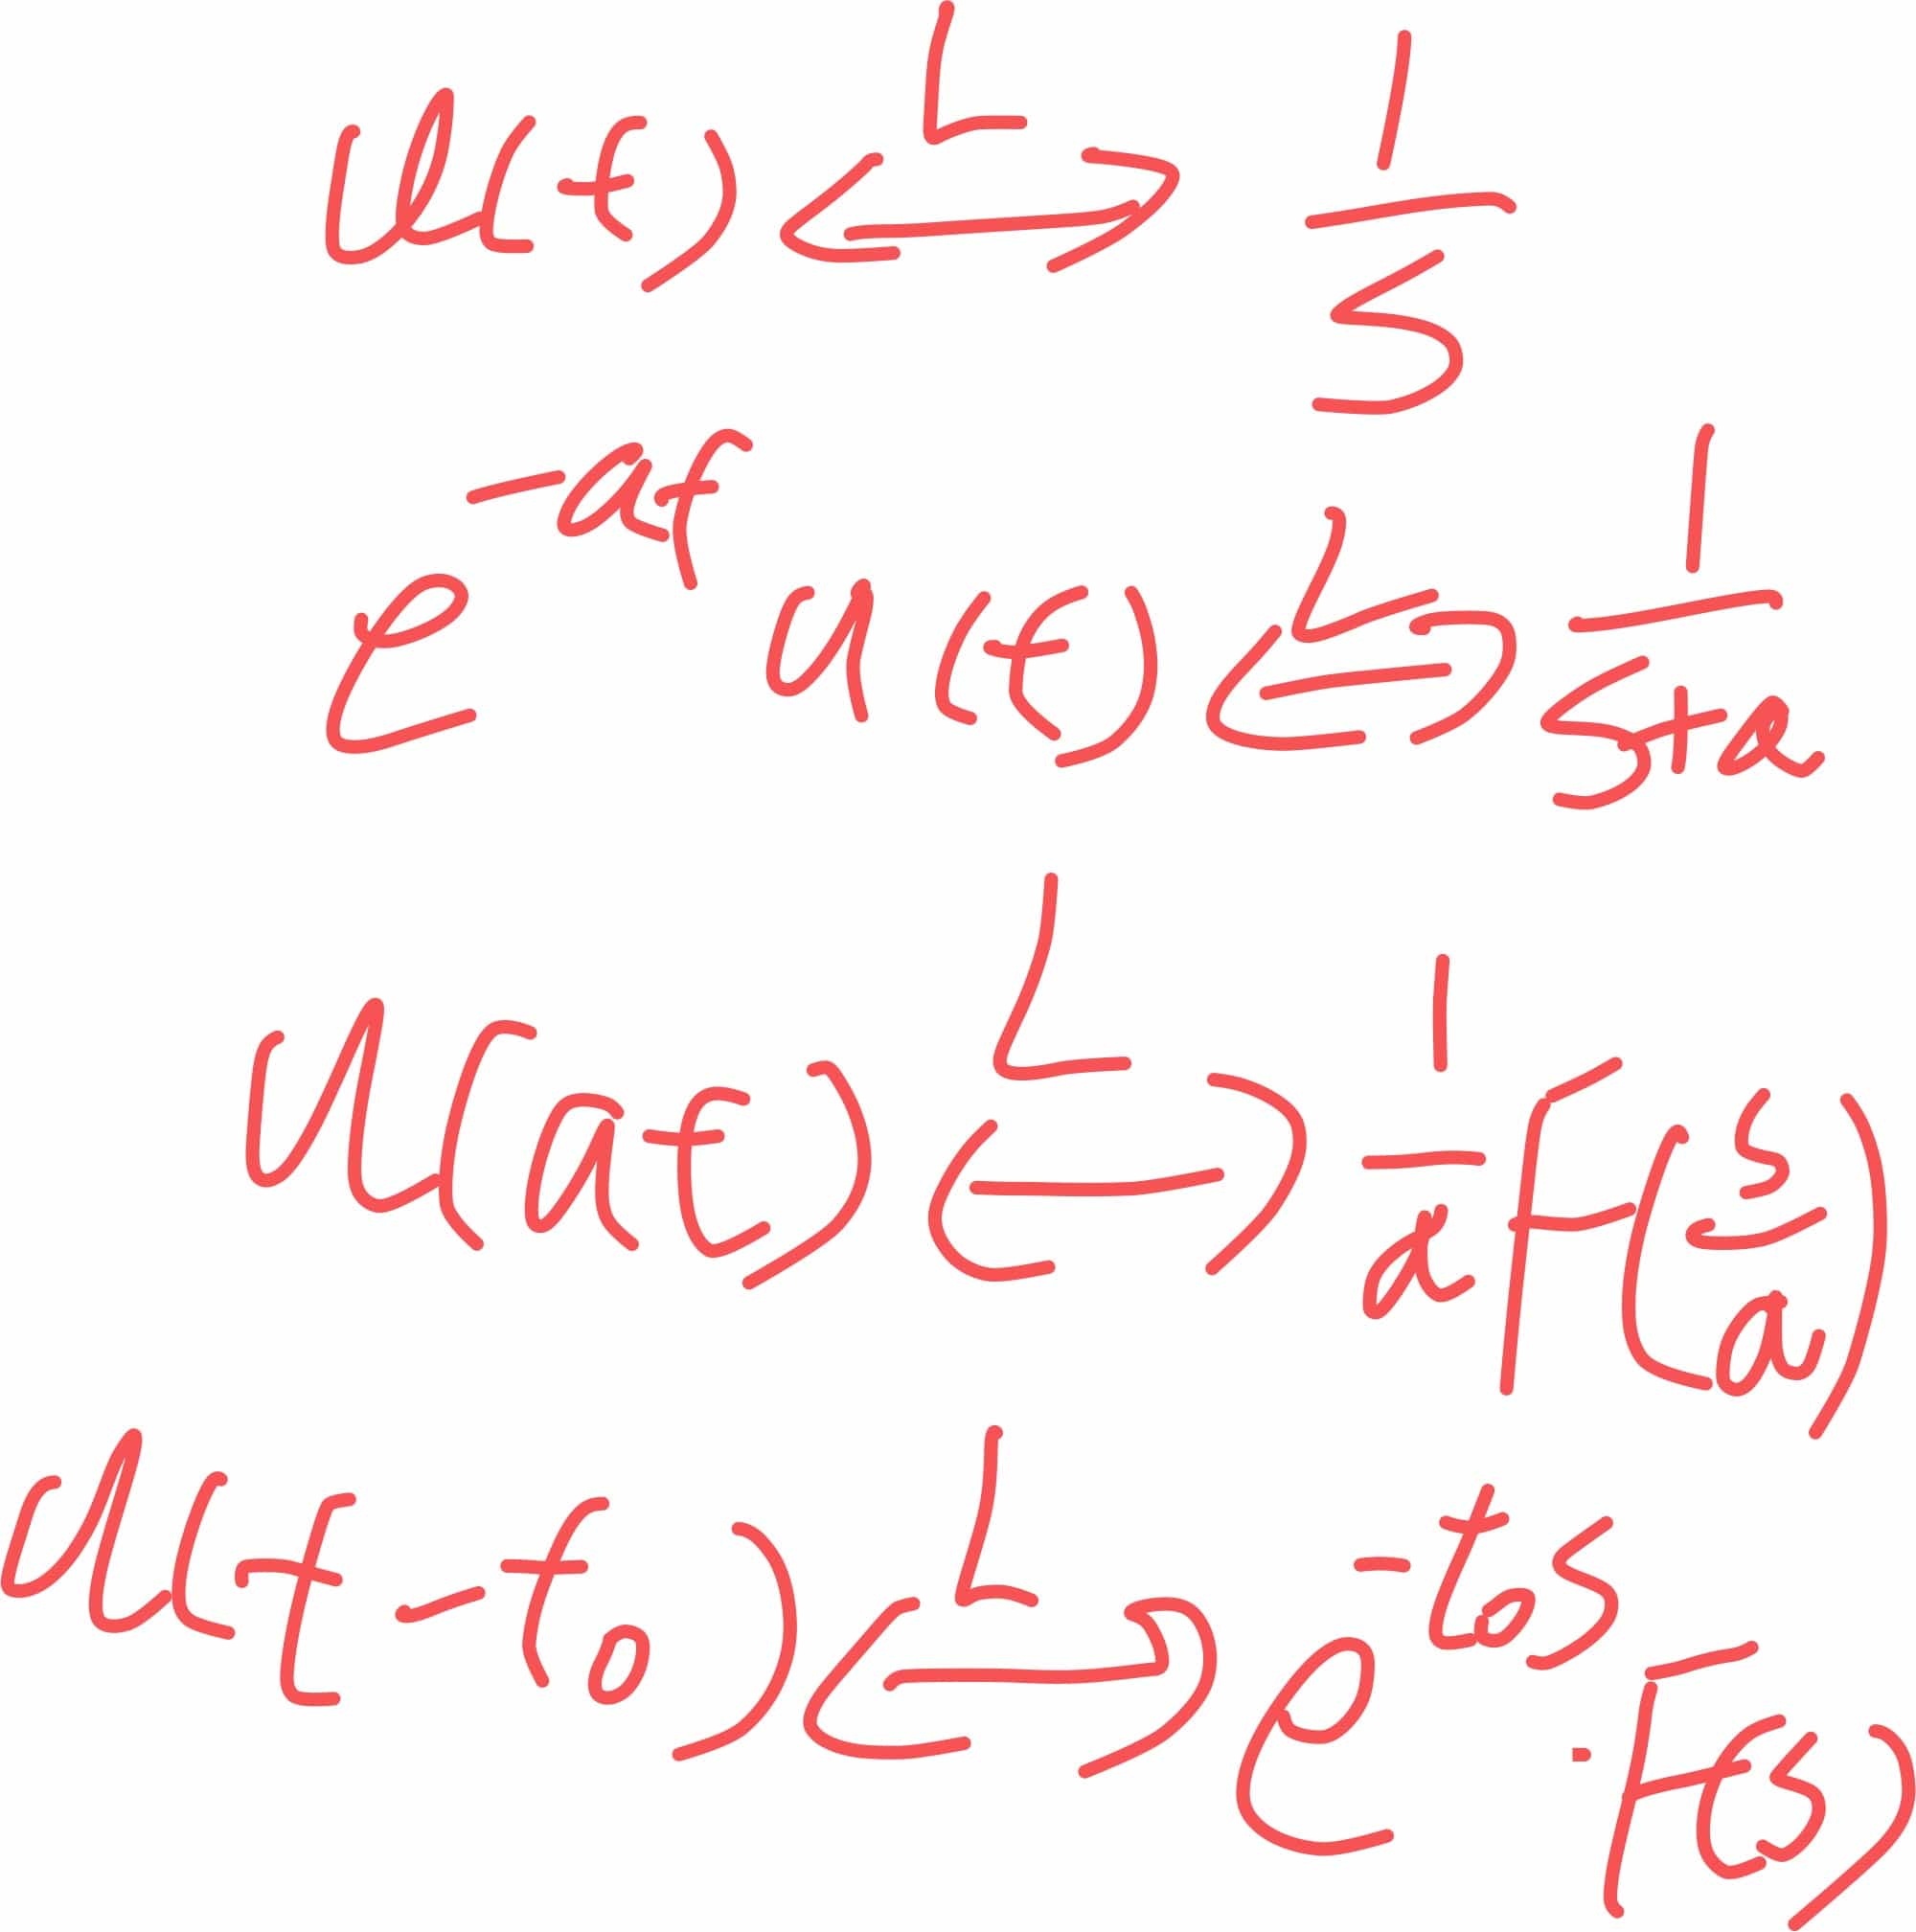 u(t) <=> L 1/s
e^{-at} u(t) <=> L 1/(s+a)
u(at) <=> L 1/a F(s/a)
u(t-t₀) <=> L e^{-t₀s} · F(s)